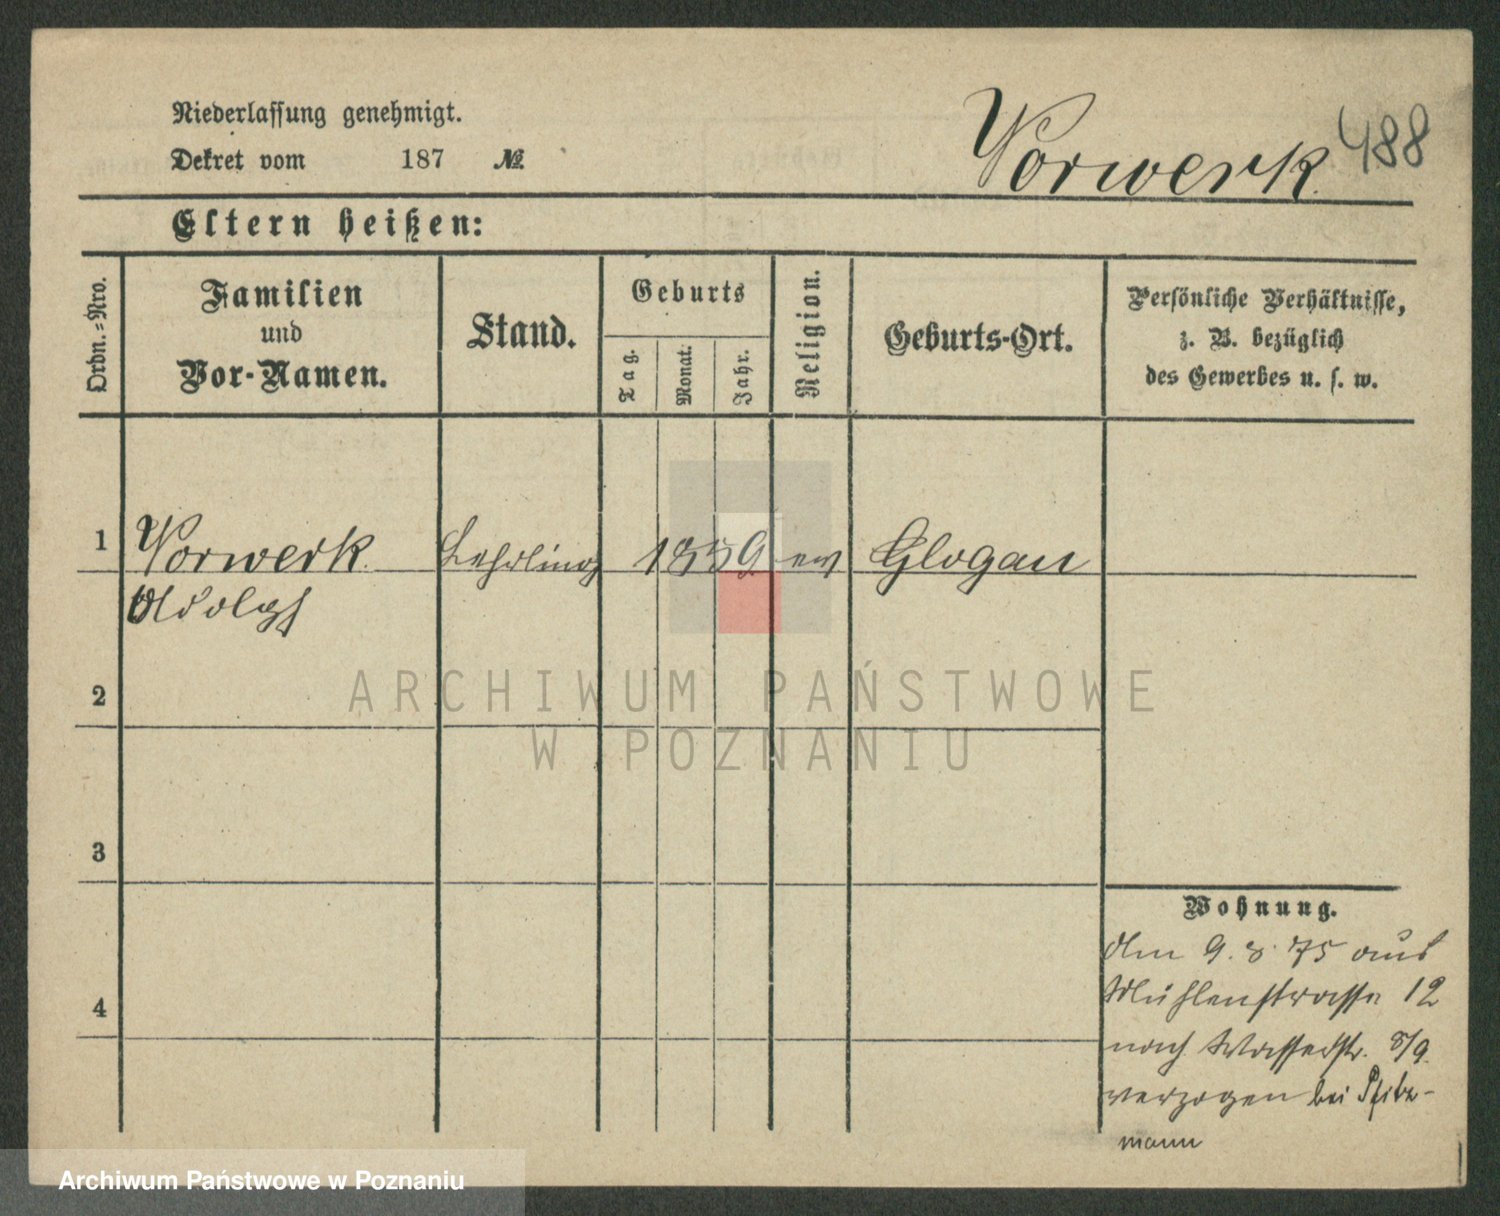 Niederlassung genehmigt.
Dekret vom 187 №
Vorwerk 488
Eltern heißen:
Ordn.=Nro.
Familien
und
Vor-Namen.
Stand.
Geburts
Tag.
Monat.
Jahr.
Religion.
Geburts-Ort.
Persönliche Verhältnisse,
z. B. bezüglich
des Gewerbes u. s. w.
1 Vorwerk Lehrling 1859 ev Glogau
Adolph
2
3
4
ARCHIWUM PAŃSTWOWE
W POZNANIU
Wohnung.
Am 9. 8. 75 aus
Mühlenstrasse 12
nach Wasserstr. 8/9
verzogen bei Pfitz-
mann
Archiwum Państwowe w Poznaniu